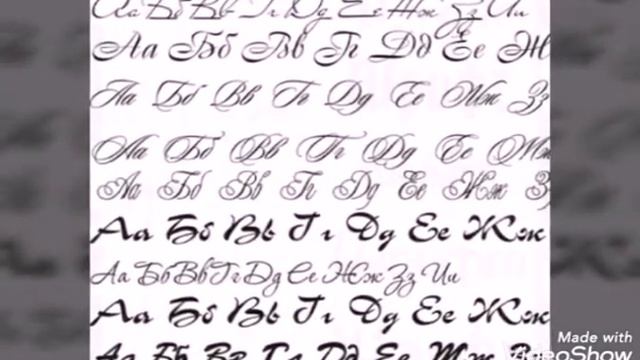 Аа Бб Вв Гг Дд Ее Жж Зз Ии
Аа Бб Вв Гг Дд Ее Ж
Аа Бб Вв Гг Дд Ее Жж Зз
Аа Бб Вв Гг Дд Ее Жж
Аа Бб Вв Гг Дд Ее Жж З
Аа Бб Вв Гг Дд Ее Жж
Аа Бб Вв Гг Дд Ее Жж Зз Ии
Аа Бб Вв Гг Дд Ее Жж
Аа Бб Вв Гг Дд Ее Жж
Made with
VideoShow